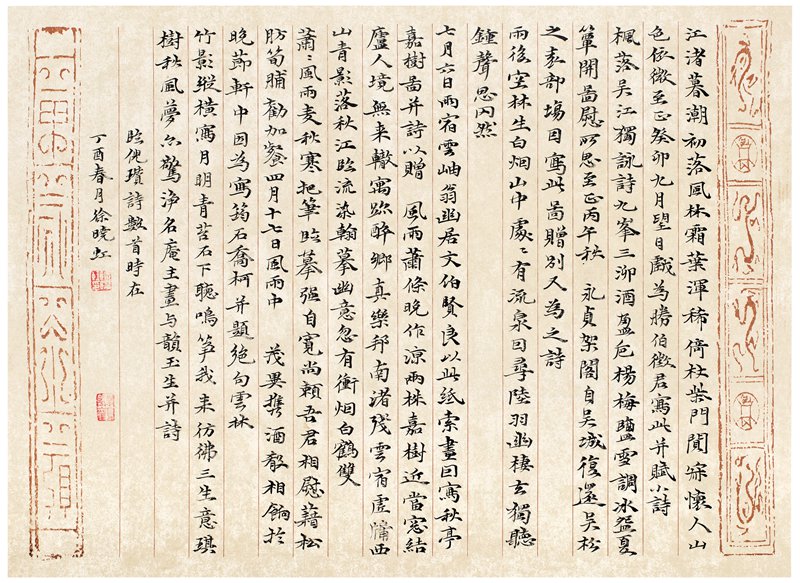 江渚暮潮初落風林霜葉渾稀倚杖柴門閴寂懷人山
色依微至正癸卯九月望日戲為勝伯徵君寫此并賦小詩
楓落吳江獨詠詩九峯三泖酒盈卮楊梅鹽雪調冰盌夏
簟開圖慰所思至正丙午秋 永貞架閣自吳城復還吳松
之表部塲因寫此圖贈別又為之詩
雨後空林生白烟山中處〻有流泉因尋陸羽幽棲去獨聽
鍾聲思冈然
七月六日雨宿雲岫翁幽居文伯賢良以此紙索畫因寫秋亭
嘉樹圖并詩以贈 風雨蕭條晚作涼兩株嘉樹近當窓結
廬人境無来轍寓跡醉鄉真樂邦南渚殘雲宿虛牖西
山青影落秋江臨流染翰摹幽意忽有衝烟白鶴雙
蕭〻風雨麦秋寒把筆臨摹强自寬尚賴吾君相慰藉松
肪筍脯勸加餐四月十七日風雨中 茂異携酒殽相餉於
晚節軒中因為寫筠石喬柯并題絶句雲林
竹影縱橫寫月明青苔石下聽鳴箏我来彷彿三生意琪
樹秋風夢亦驚淨名庵主畫与韻玉生并詩
臨倪瓚詩數首時在
丁酉春月徐曉虹